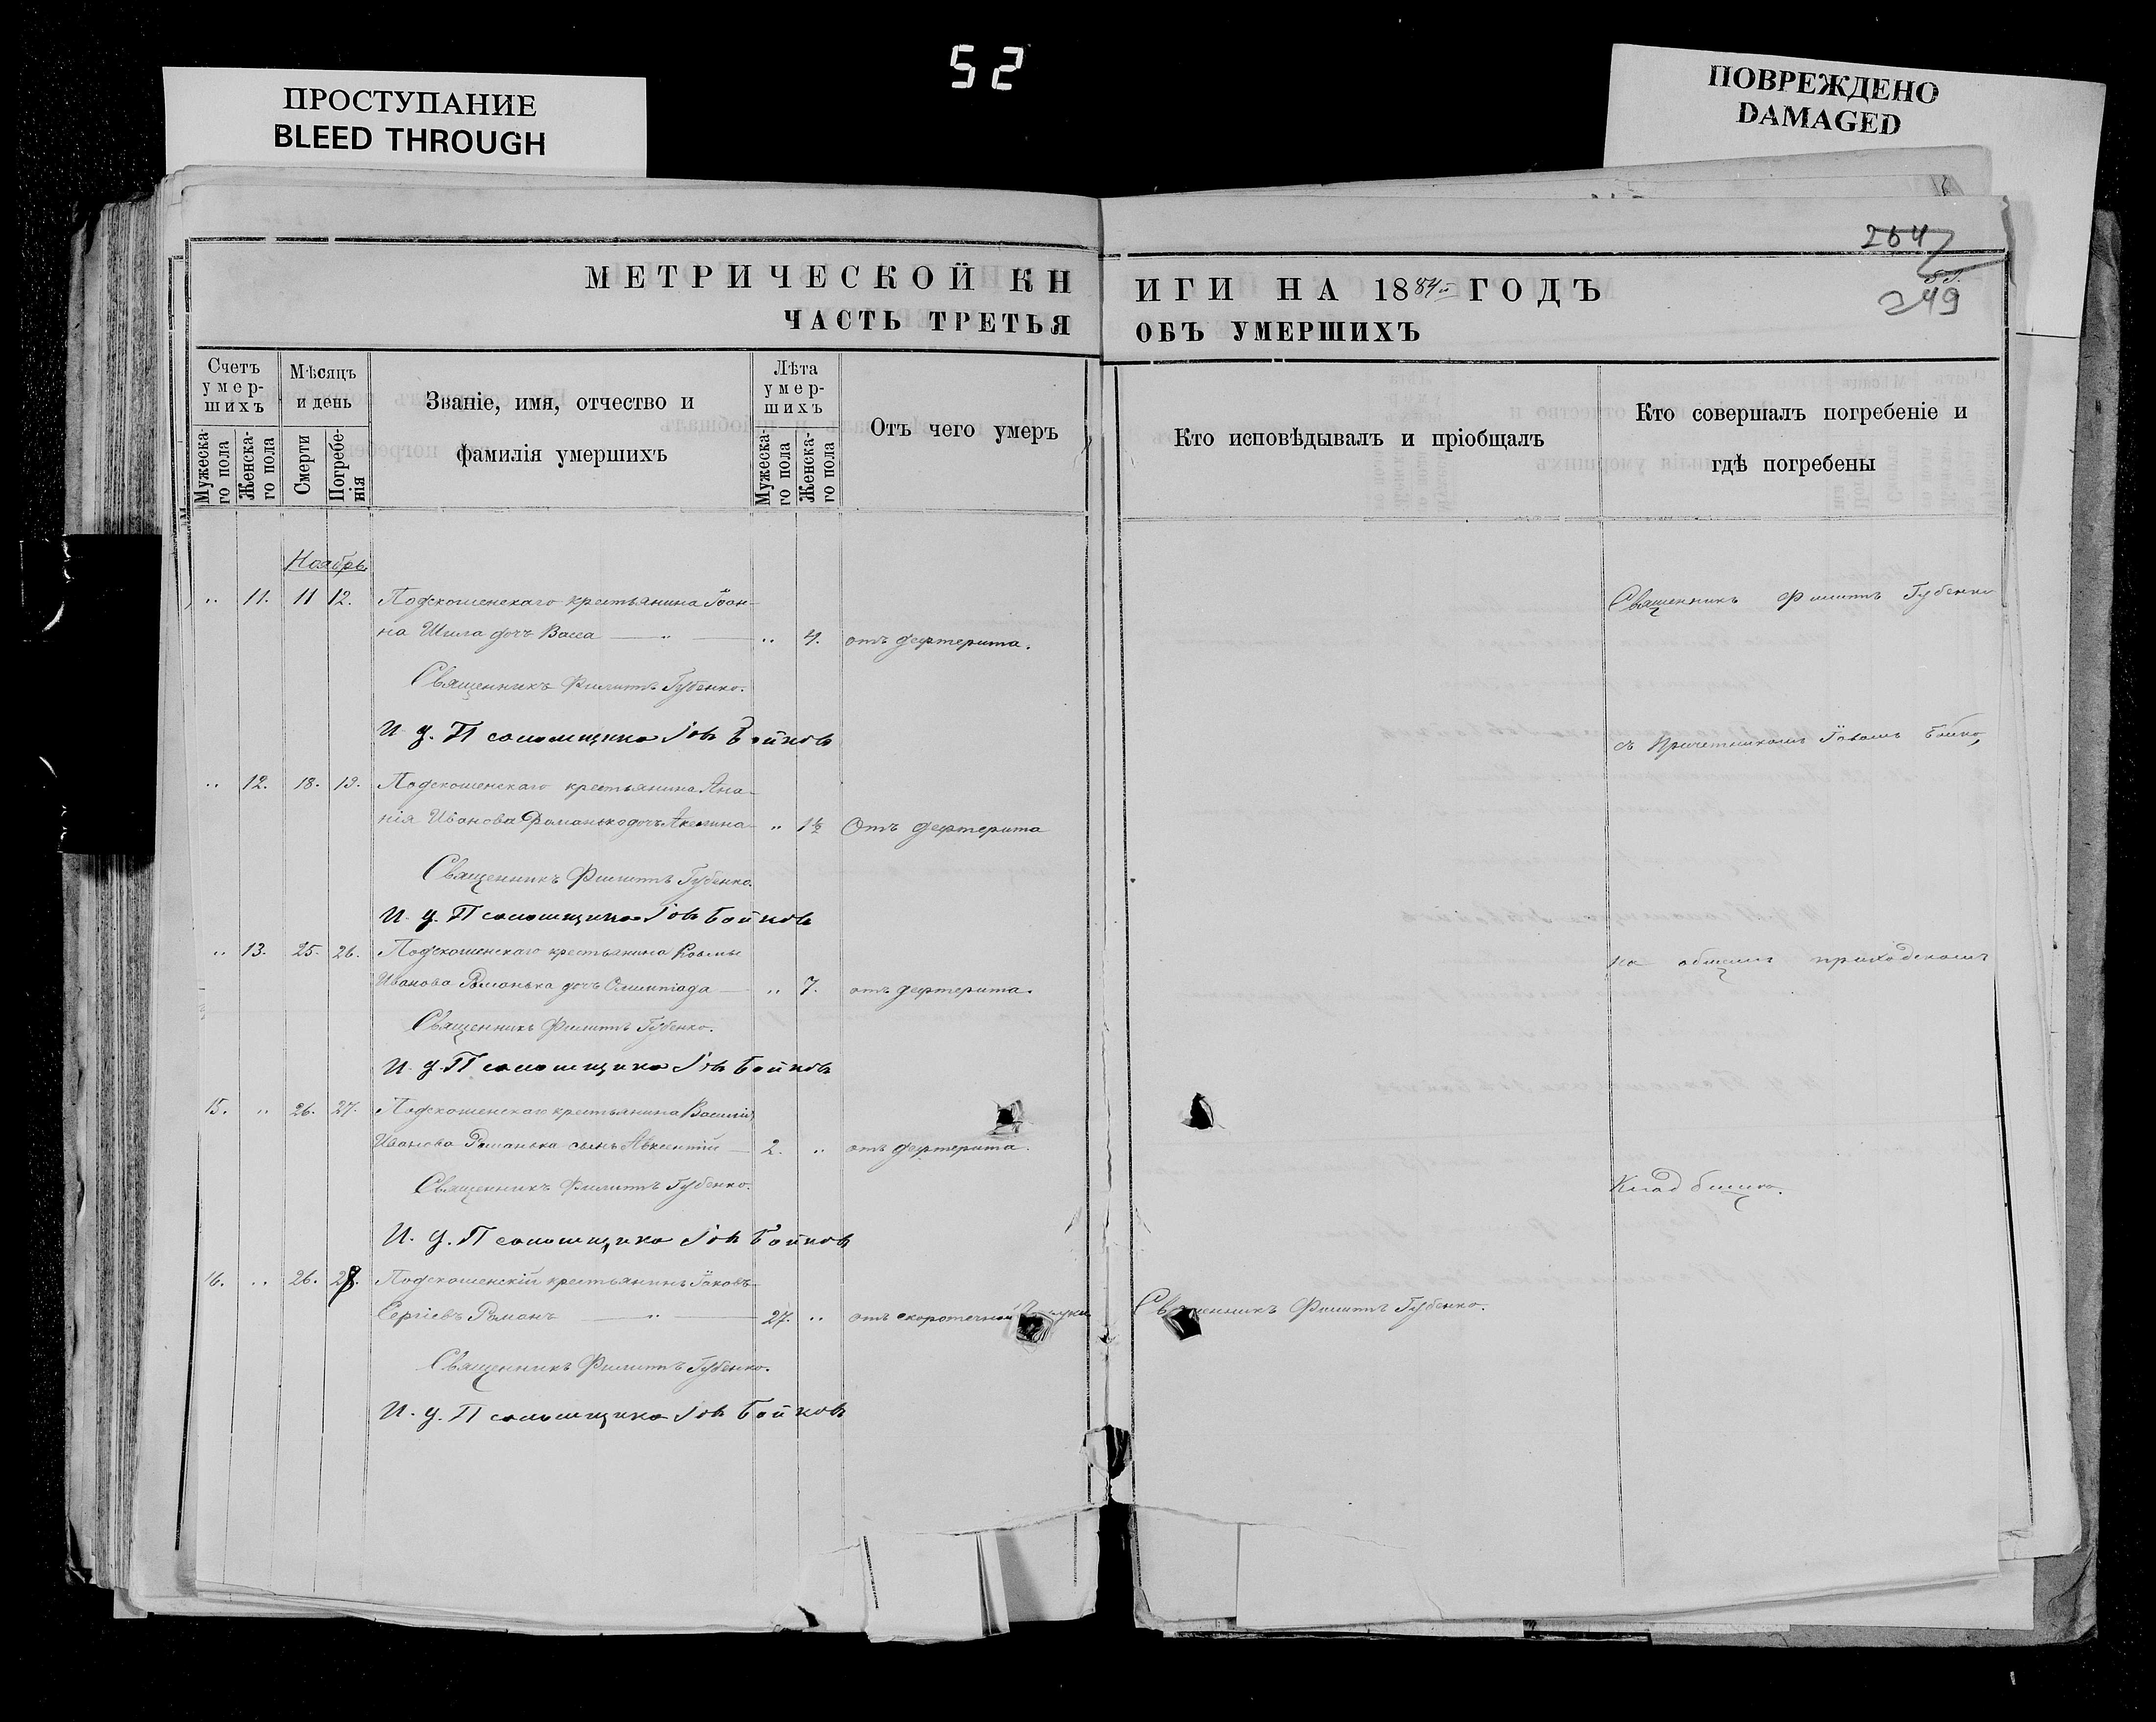 52
ПРОСТУПАНИЕ
BLEED THROUGH
ПОВРЕЖДЕНО
DAMAGED
264
249
МЕТРИЧЕСКОЙ КН
ИГИ НА 1884 ГОДЪ
ЧАСТЬ ТРЕТЬЯ
ОБЪ УМЕРШИХЪ
Счетъ умер-шихъ
Мѣсяцъ и день
Званіе, имя, отчество и
фамилія умершихъ
Лѣта умер-шихъ
Отъ чего умеръ
Кто исповѣдывалъ и пріобщалъ
Кто совершалъ погребеніе и
гдѣ погребены
Мужеска-го пола
Женска-го пола
Смерти
Погребе-нія
Мужеска-го пола
Женска-го пола
Ноябрь
" 11. 11 12. крестьянина Іоан-
на Шила дочь Васса — " — " 4. отъ дефтерита.
Священникъ Филиппъ Губенко.
И. д. Псаломщика Іовъ Бойковъ
" 12. 18. 19. крестьянина Ана-
нія Иванова Романька дочь Акилина " 1½ Отъ дефтерита
Священникъ Филиппъ Губенко.
И. д. Псаломщика Іовъ Бойковъ
" 13. 25. 26. крестьянина Козьмы
Иванова Романька дочь Олимпіада — " 7. отъ дефтерита.
Священникъ Филиппъ Губенко.
И. д. Псаломщика Іовъ Бойковъ
15. " 26. 27. крестьянина Василія
Иванова Романька сынъ Авксентій — 2. " отъ дефтерита.
Священникъ Филиппъ Губенко.
И. д. Псаломщика Іовъ Бойковъ
16. " 26. 28. крестьянинъ Іаковъ
Сергіевъ Романъ — " — 27. " отъ скоротечной
Священникъ Филиппъ Губенко.
И. д. Псаломщика Іовъ Бойковъ
Священникъ Филиппъ Губенко.
Священникъ Филиппъ Губенко
съ Причетникомъ Іовомъ
на общемъ приходскомъ
Кладбищѣ.